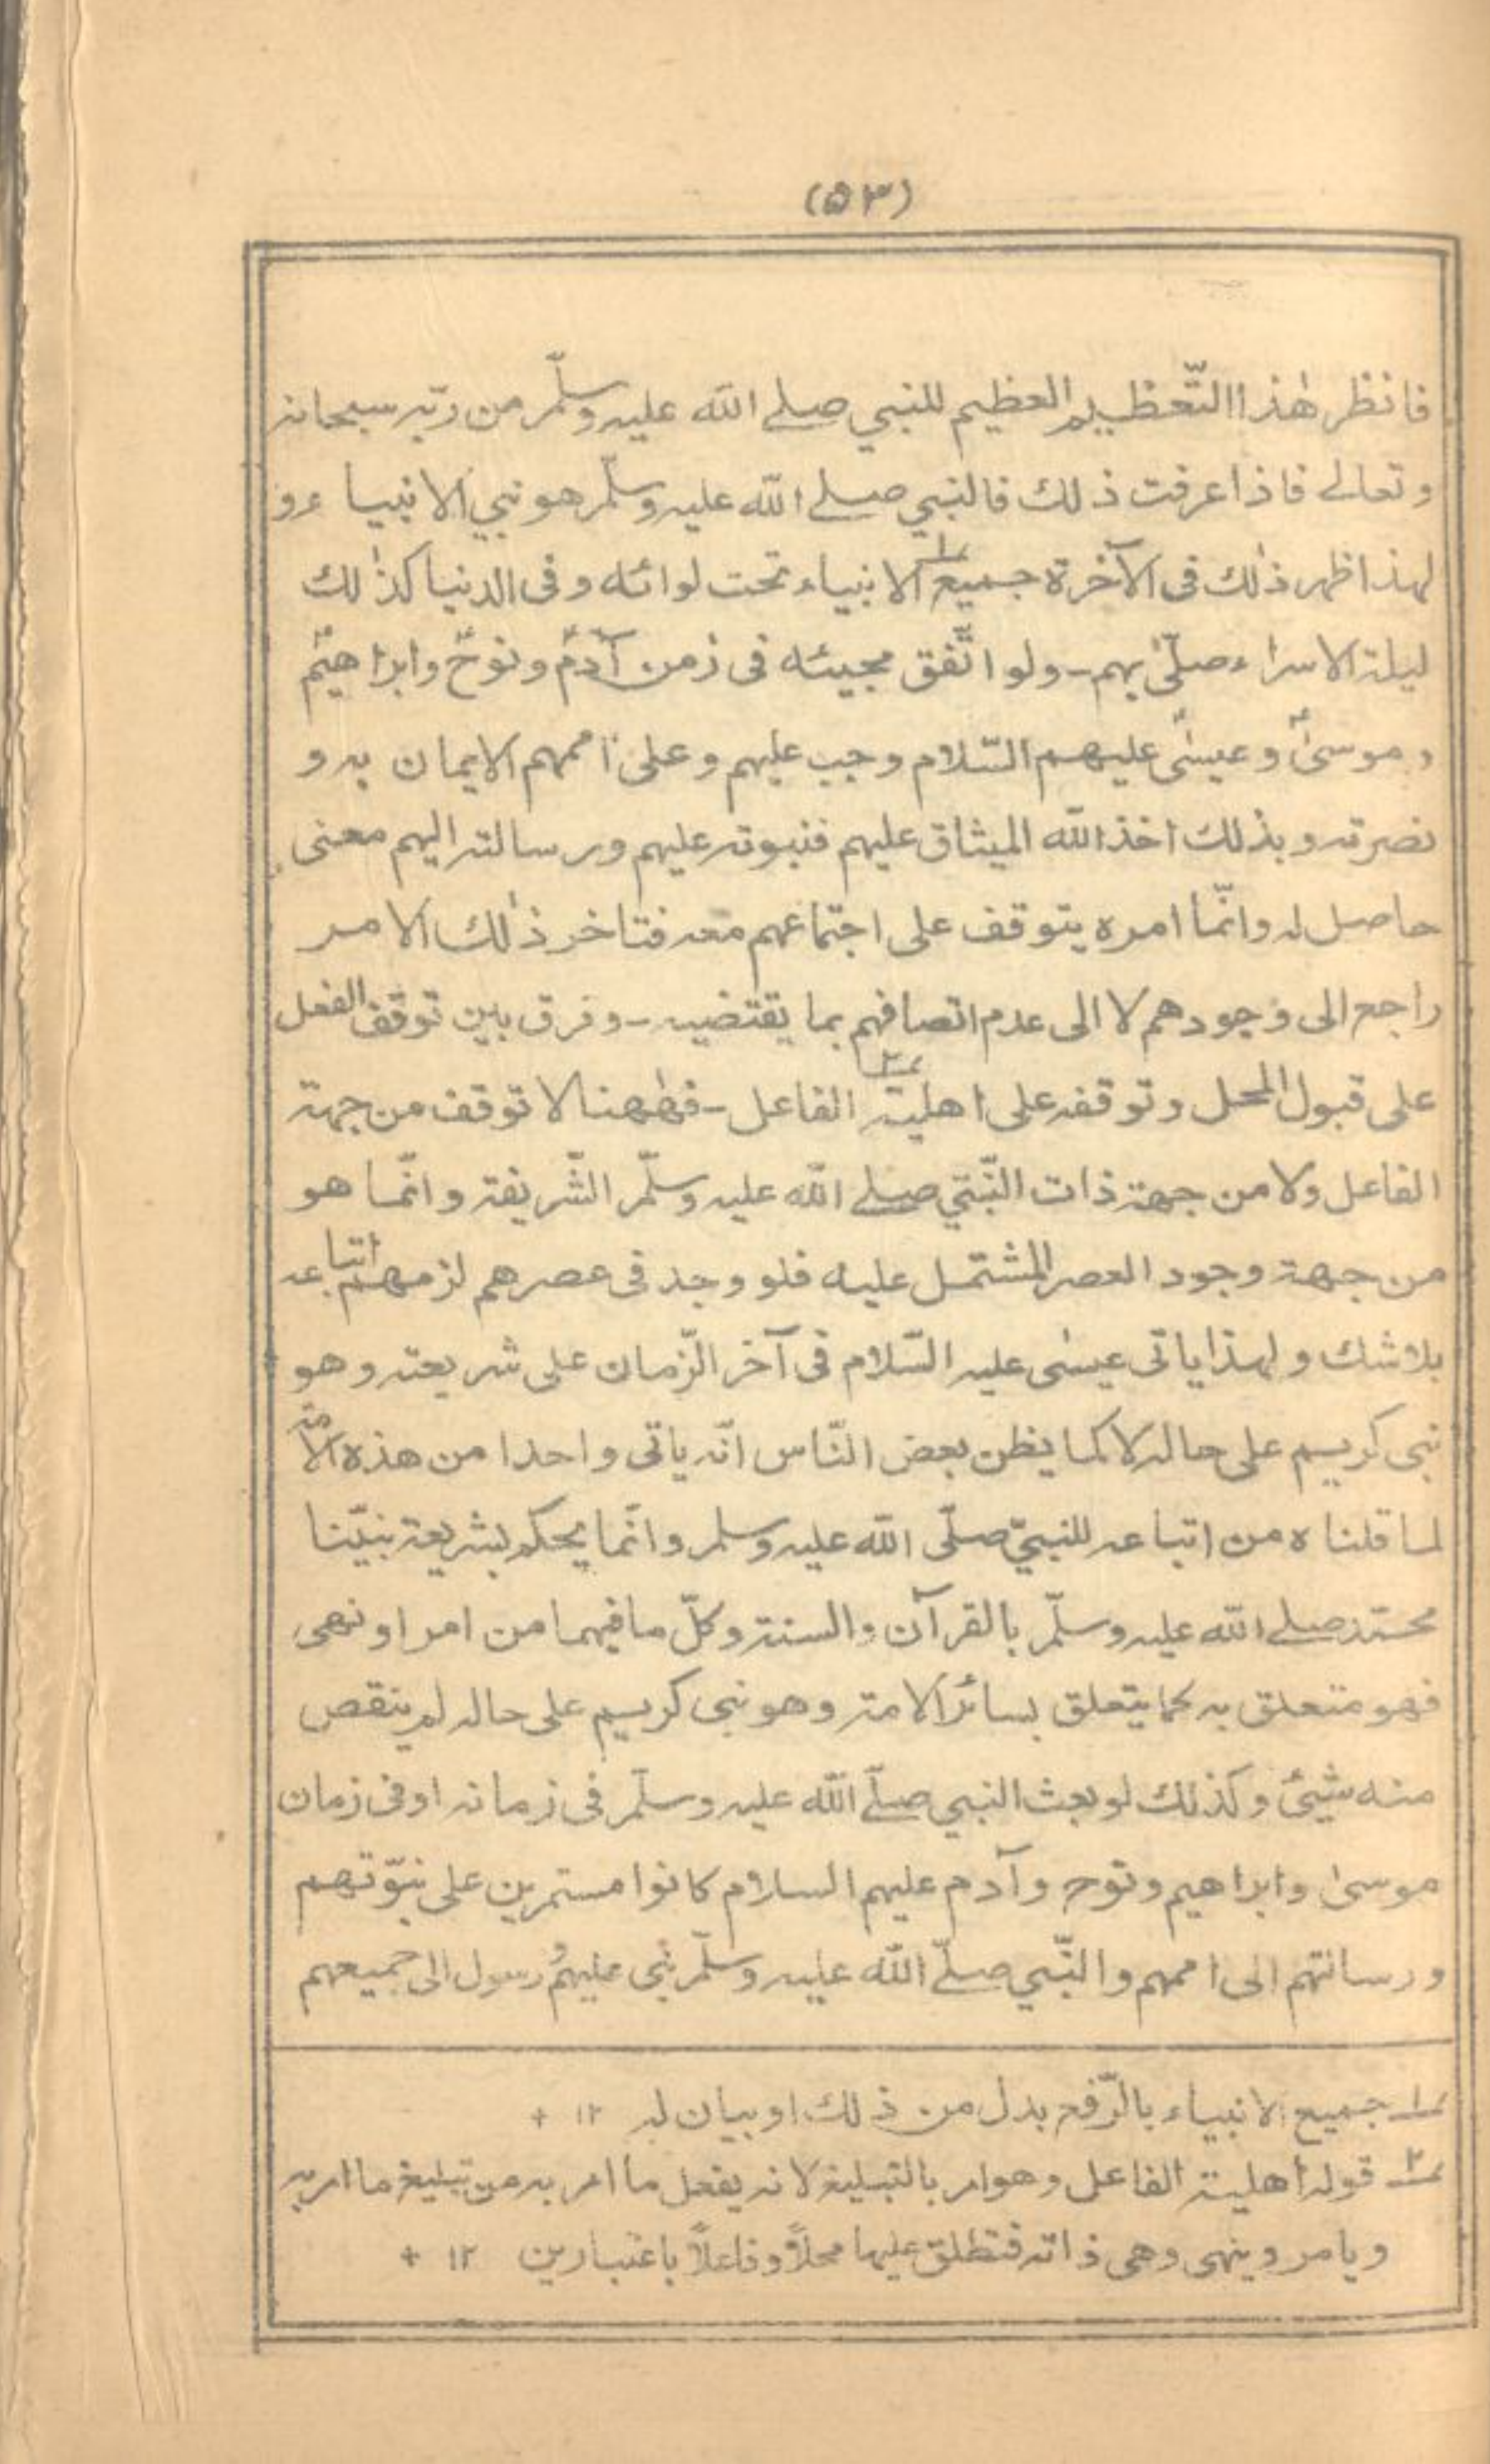 (۵۳)
فانظر هٰذا التّعظيم العظيم للنبي صلے الله عليه وسلّم من ربّه سبحانه
وتعالے فاذا عرفت ذلك فالنبي صلے الله عليه وسلّم هو نبي الانبياء و
لهذا ظهر ذٰلك فى الآخرة جميع۱ الانبياء تحت لوائه وفى الدنيا كذٰلك
ليلة الاسراء صلّىٰ بهم - ولو اتّفق مجيئه فى زمن آدمؑ ونوحؑ وابراهيمؑ
وموسىٰؑ وعيسىٰؑ عليهم السّلام وجب عليهم وعلىٰ اممهم الايمان به و
نصرته وبذلك اخذ الله الميثاق عليهم فنبوته عليهم ورسالته اليهم معنى
حاصل له وانّما امره يتوقف على اجتماعهم معه فتاخر ذٰلك الامر
راجع الى وجودهم لا الى عدم اتصافهم بما يقتضيه - وفرق بين توقف الفعل
على قبول المحل وتوقفه على اهلية۲ الفاعل - فهٰهنا لا توقف من جهة
الفاعل ولا من جهة ذات النّبي صلے الله عليه وسلّم الشّريفة وانّما هو
من جهة وجود العصر المشتمل عليه فلو وجد فى عصرهم لزمهم اتباعه
بلا شك ولهذا ياتى عيسٰى عليه السّلام فى آخر الزّمان على شريعته وهو
نبى كريم على حاله لا كما يظن بعض النّاس انّه ياتى واحدا من هذه الامّة
لما قلناه من اتباعه للنبيّ صلّى الله عليه وسلم وانّما يحكم بشريعة نبيّنا
محمّد صلے الله عليه وسلّم بالقرآن والسنة وكلّ ما فيهما من امر او نهى
فهو متعلق به كما يتعلق بسائر الامة وهو نبى كريم على حاله لم ينقص
منه شيئ وكذلك لو بعث النبي صلّے الله عليه وسلّم فى زمانه او فى زمان
موسىٰ وابراهيم ونوح وآدم عليهم السلام كانوا مستمرين على نبوّتهم
ورسالتهم الى اممهم والنّبي صلّے الله عليه وسلّم نبى عليهم ورسول الى جميعهم
۱ جميع الانبياء بالرّفع بدل من ذلك او بيان له ۱۲ +
۲ قوله اهلية الفاعل وهو امر بالتبليغ لانه يفعل ما امر به من تبليغ ما امر به
ويامر وينهى وهى ذاته فتطلق عليها محلاً وفاعلاً باعتبارين ۱۲ +